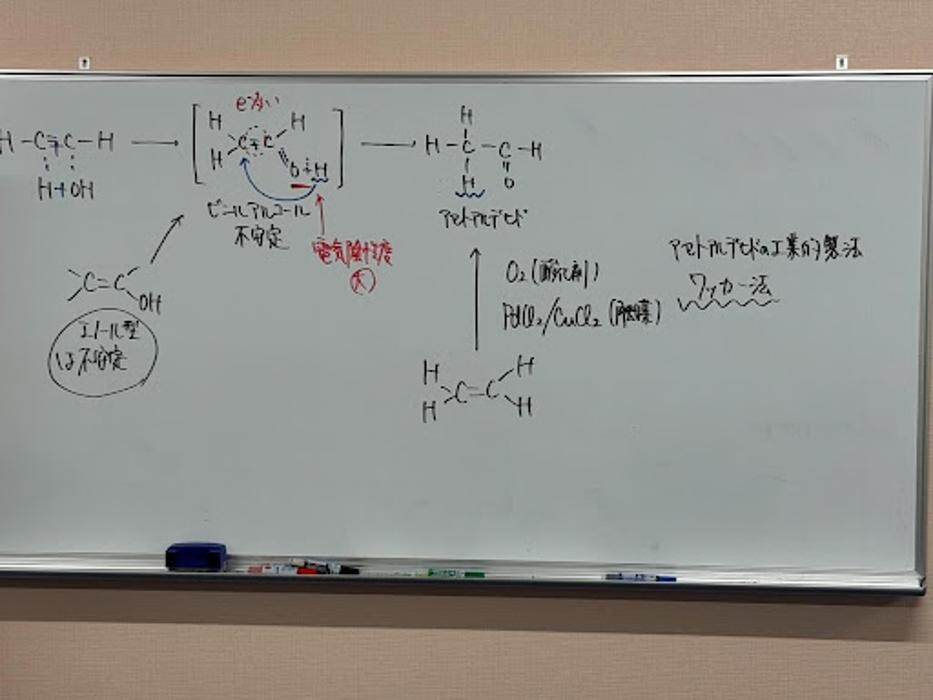 H-C≡C-H → [ H H C=C H O-H ] → H-C-C-H
H+OH
e⁻多い
H
H O
ビニルアルコール
不安定
アセトアルデヒド
電気陰性度
大
C=C
OH
エノール型
は不安定
O₂(酸化剤)
PdCl₂/CuCl₂(触媒)
アセトアルデヒドの工業的製法
ワッカー法
H H
C=C
H H